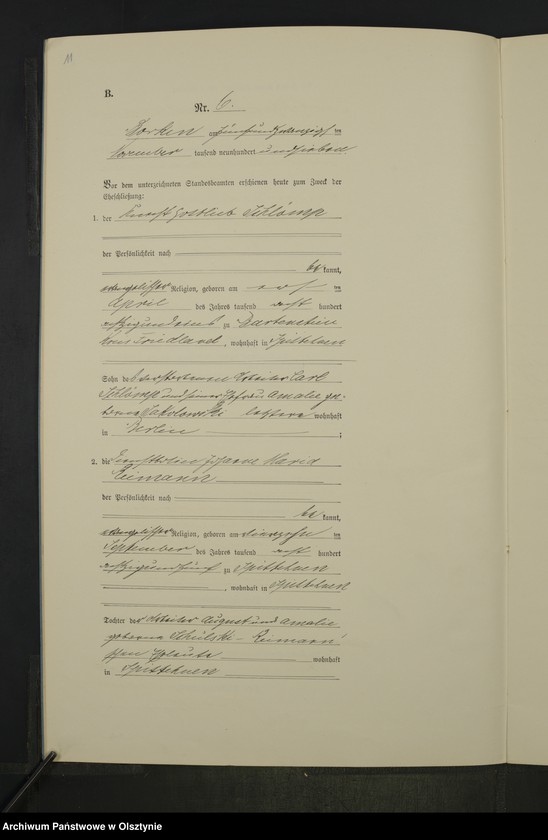 11
B.
Nr. 6.
Borken am fünfundzwanzigsten
November tausend neunhundert und sieben
Vor dem unterzeichneten Standesbeamten erschienen heute zum Zweck der
Eheschließung:
1. der Knecht Gottlieb Schlömp
der Persönlichkeit nach
be kannt,
evangelischer Religion, geboren am
April des Jahres tausend acht hundert
zu Bartenstein
Kreis Friedland, wohnhaft in Spittehnen
Sohn des verstorbenen Carl
Schlömp und seiner Ehefrau Amalie ge-
borene Sakolowski letztere wohnhaft
in Berlin ;
2. die Johanne Maria
Reimann
der Persönlichkeit nach
be kannt,
evangelischer Religion, geboren am vierzehnten
September des Jahres tausend acht hundert
achtzigundfünf zu Spittehnen
, wohnhaft in Spittehnen
Tochter der August und Amalie
geborene Schulski - Reimann
schen Eheleute wohnhaft
in Spittehnen
Archiwum Państwowe w Olsztynie